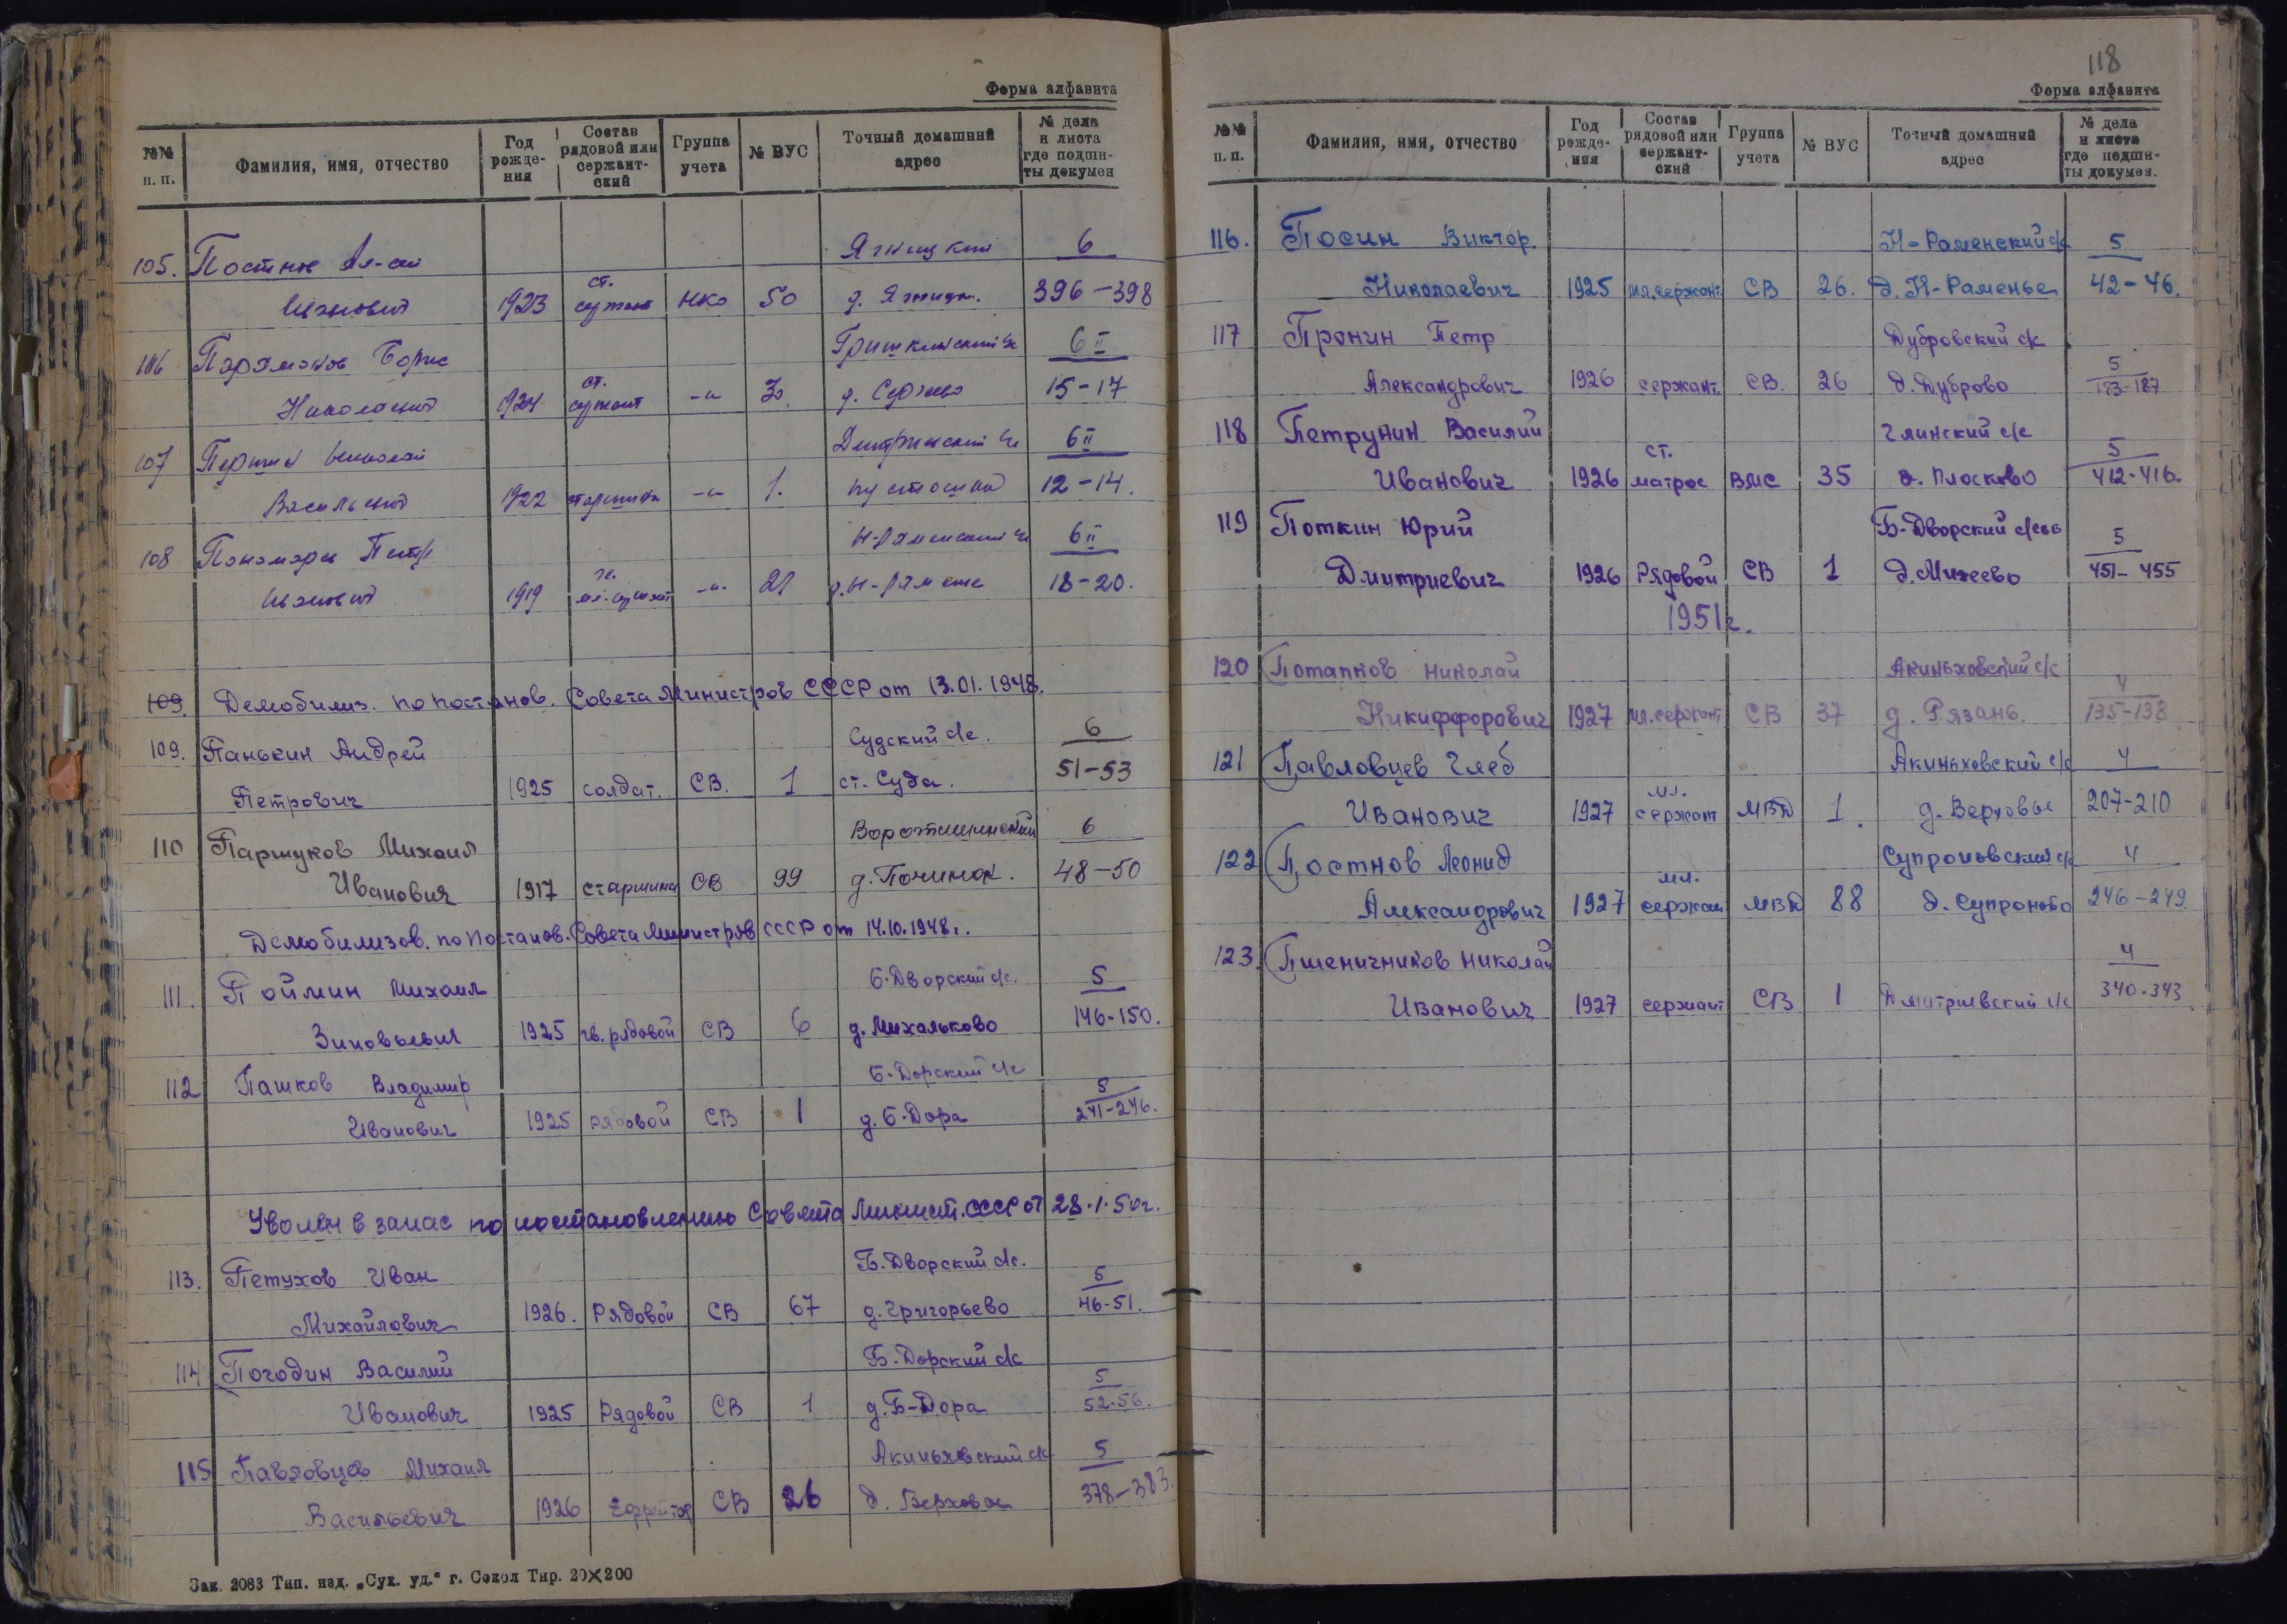 Форма алфавита
№№ п. п. Фамилия, имя, отчество Год рожде-ния Состав рядовой или сержант-ский Группа учета № ВУС Точный домашний адрес № дела и листа где подши-ты докумен
105. Ягницкий 6
Иванович 1923 ст. сержант НКО 50 д. 396-398
106 Парамонов Борис 6 II
Николаевич 1924 ст. сержант -"- 15-17
107 Николай 6 II
Васильевич 1922 старшина -"- 1. 12-14.
108 Петр 6 II
Иванович 1919 -"- 21 18-20.
109. Демобилиз. по постанов. Совета Министров СССР от 13.01.1948.
109. Панькин Андрей Судский с/с. 6
Петрович 1925 солдат. СВ. 1 ст. Суда. 51-53
110 Паршуков Михаил 6
Иванович 1917 старшина СВ 99 д. Починок. 48-50
Демобилизов. по Постанов. Совета Министров СССР от 14.10.1948г.
111. Поймин Михаил Б.Дворский с/с. 5
Зиновьевич 1925 гв. рядовой СВ 6 д. Михальково 146-150.
112 Пашков Владимир Б.Дорский с/с 5
Иванович 1925 рядовой СВ 1 д. Б.Дора 241-246.
Уволен в запас по постановлению Совета Минист. СССР от 28.1.50г.
113. Петухов Иван Б.Дворский с/с. 5
Михайлович 1926. Рядовой СВ 67 д. Григорьево 46-51.
114 Погодин Василий Б.Дорский с/с 5
Иванович 1925 Рядовой СВ 1 д. Б-Дора 52-56.
115 Павловцев Михаил Акиньховский с/с 5
Васильевич 1926 Ефрейтор СВ 26 д. Верховье 378-383.
Зак. 2083 Тип. изд. „Сух. уд.“ г. Сокол Тир. 20×200
118
Форма алфавита
№№ п. п. Фамилия, имя, отчество Год рожде-ния Состав рядовой или сержант-ский Группа учета № ВУС Точный домашний адрес № дела и листа где подши-ты докумен.
116. Посин Виктор. Н-Раменский с/с 5
Николаевич 1925 мл. сержант СВ 26. д. Н-Раменье 42-46.
117 Пронин Петр Дубровский с/с 5
Александрович 1926 сержант СВ. 26 д. Дуброво 183-187
118 Петрунин Василий Глинский с/с 5
Иванович 1926 ст. матрос ВМС 35 д. Плосково 412-416.
119 Поткин Юрий Б-Дворский 5
Дмитриевич 1926 Рядовой СВ 1 д. Михеево 451-455
1951г.
120 Потапков Николай Акиньховский с/с 4
Никиффорович 1927 мл. сержант СВ 37 д. Рязань. 135-138
121 Павловцев Глеб Акиньховский с/с 4
Иванович 1927 мл. сержант МВД 1. д. Верховье 207-210
122 Постнов Леонид Супроновский с/с 4
Александрович 1927 мл. сержант МВД 88 д. Супроново 246-249
123. Пшеничников Николай 4
Иванович 1927 сержант СВ 1 Дмитриевский с/с 340-343